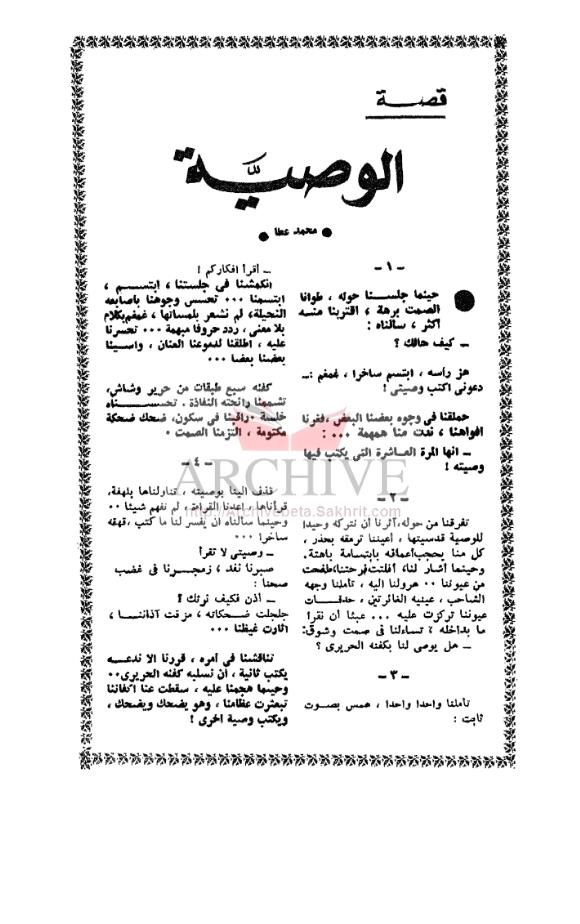 قصة
الوصيَّة
● محمد عطا ●
- ١ -
● حينما جلسنا حوله ، طوانا
الصمت برهة ، اقتربنا منه
اكثر ، سالناه :
ــ كيف حالك ؟
هز رأسه ، ابتسم ساخرا ، غمغم :ــ
دعونى اكتب وصيتى !
حملقنا فى وجوه بعضنا البعض ، فغرنا
افواهنا ، ندت منا همهمة ... :
ــ انها المرة العاشرة التى يكتب فيها
وصيته !
- ٢ -
تفرقنا من حوله، آثرنا أن نتركه وحيدا
للوصية قدسيتها ، أعيننا ترمقه بحذر ،
كل منا يحجب أعماقه بابتسامة باهتة.
وحينما أشار لنا، أفلتت فرحتنا، طفحت
من عيوننا .. هرولنا اليه ، تأملنا وجهه
الشاحب ، عينيه الغائرتين ، حدقات
عيوننا تركزت عليه ... عبثا أن نقرأ
ما بداخله ، تساءلنا فى صمت وشوق:
ــ هل يوصى لنا بكفنه الحريرى ؟
- ٣ -
تأملنا واحدا واحدا ، همس بصوت
ثابت :
ــ أقرأ أفكاركم !
انكمشنا فى جلستنا ، ابتسم ،
ابتسمنا ... تحسس وجوهنا باصابعه
النحيلة، لم نشعر بلمساتها ، غمغم بكلام
بلا معنى ، ردد حروفا مبهمة ... تحسرنا
عليه ، اطلقنا لدموعنا العنان ، واسينا
بعضنا بعضا ...
كفنه سبع طبقات من حرير وشاش،
تشممنا رائحته النفاذة . تحسسناه
خلسة . راقبنا فى سكون، ضحك ضحكة
مكتومة ، التزمنا الصمت .
- ٤ -
قذف الينا بوصيته ، تناولناها بلهفة،
قرأناها ، اعدنا القراءة ، لم نفهم شيئا ..
وحينما سالناه أن يفسر لنا ما كتب ، قهقه
ساخرا ...
ــ وصيتى لا تقرأ
صبرنا نفد ، زمجرنا فى غضب
صحنا :
ــ أذن فكيف نرثك ؟
جلجلت ضحكاته ، مزقت آذاننا ،
اثارت غيظنا ...
تناقشنا فى أمره ، قررنا الا ندعه
يكتب ثانية ، أن نسلبه كفنه الحريرى..
وحينما هجمنا عليه ، سقطت عنا اكفاننا
تبعثرت عظامنا ، وهو يضحك ويضحك ،
ويكتب وصية أخرى !
ARCHIVE
http://Archivebeta.Sakhrit.com